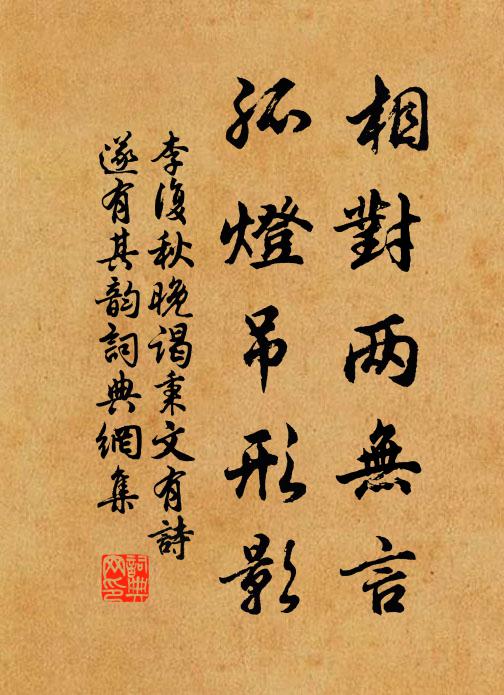 相對两無言
孤燈吊形影
李復秋晚谒秉文有詩
遂有其韵詞典網集
詞典网印